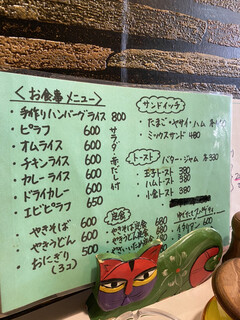 ＜お食事メニュー＞
・手作りハンバーグライス 800
・ピラフ 600
・オムライス 600
・チキンライス 600
・カレーライス 600
・ドライカレー 600
・エビピラフ 650
サラダ・赤だし付
やきそば 600
やきうどん 600
・おにぎり 500
(3コ)
サンドイッチ
・たまご・ヤサイ・ハム
・ミックスサンド 480
トースト バター・ジャム 各330
・玉子トースト 380
・ハムトースト 380
・小倉トースト 380
定食
やきそば定食
やきうどん定食